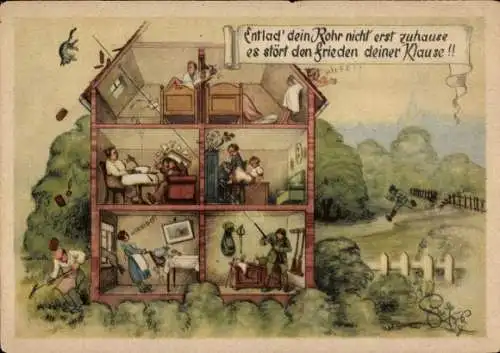 Entlad' dein Rohr nicht erst zuhause
es stört den Frieden deiner Klause!!